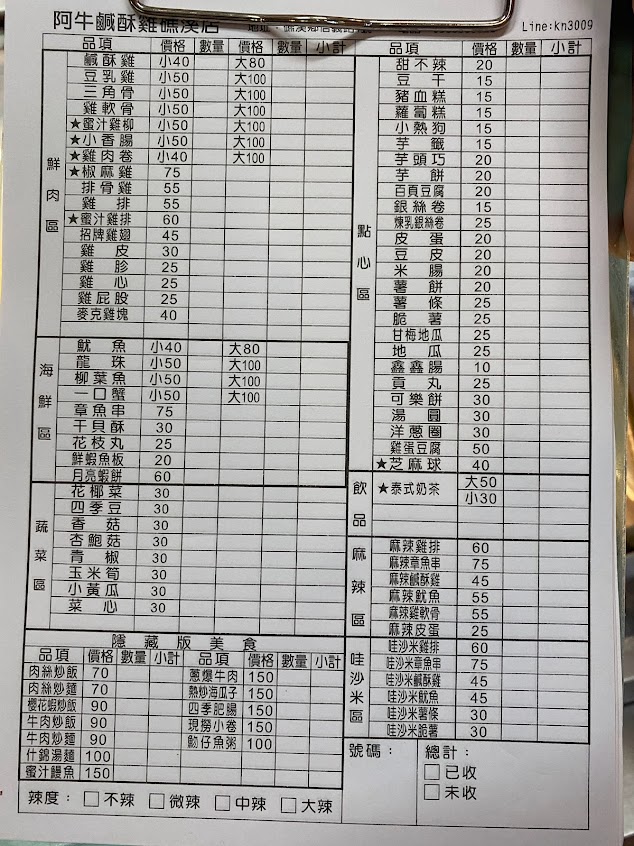 阿牛鹹酥雞礁溪店
Line:kn3009
品項 價格 數量 價格 數量 小計
鮮肉區
鹹酥雞 小40 大80
豆乳雞 小50 大100
三角骨 小50 大100
雞軟骨 小50 大100
★蜜汁雞柳 小50 大100
★小香腸 小50 大100
★雞肉卷 小40 大100
★椒麻雞 75
排骨雞 55
雞排 55
★蜜汁雞排 60
招牌雞翅 45
雞皮 30
雞胗 25
雞心 25
雞屁股 25
麥克雞塊 40
海鮮區
魷魚 小40 大80
龍珠 小50 大100
柳葉魚 小50 大100
一口蟹 小50 大100
章魚串 75
干貝酥 30
花枝丸 25
鮮蝦魚板 20
月亮蝦餅 60
蔬菜區
花椰菜 30
四季豆 30
香菇 30
杏鮑菇 30
青椒 30
玉米筍 30
小黃瓜 30
菜心 30
隱藏版美食
品項 價格 數量 小計 品項 價格 數量 小計
肉絲炒飯 70 蔥爆牛肉 150
肉絲炒麵 70 熱炒海瓜子 150
櫻花蝦炒飯 90 四季肥腸 150
牛肉炒飯 90 現撈小卷 150
牛肉炒麵 90 魩仔魚粥 100
什錦湯麵 100
蜜汁鰻魚 150
辣度： □不辣 □微辣 □中辣 □大辣
品項 價格 數量 小計
點心區
甜不辣 20
豆干 15
豬血糕 15
蘿蔔糕 15
小熱狗 15
芋籤 15
芋頭巧 20
芋餅 20
百頁豆腐 20
銀絲卷 15
煉乳銀絲卷 25
皮蛋 20
豆皮 20
米腸 20
薯餅 20
薯條 25
脆薯 25
甘梅地瓜 25
地瓜 25
鑫鑫腸 10
貢丸 25
可樂餅 30
湯圓 30
洋蔥圈 30
雞蛋豆腐 50
★芝麻球 40
飲品
★泰式奶茶 大50
小30
麻辣區
麻辣雞排 60
麻辣章魚串 75
麻辣鹹酥雞 45
麻辣魷魚 55
麻辣雞軟骨 55
麻辣皮蛋 25
哇沙米區
哇沙米雞排 60
哇沙米章魚串 75
哇沙米鹹酥雞 45
哇沙米魷魚 45
哇沙米薯條 30
哇沙米脆薯 30
號碼： 總計：
□已收
□未收